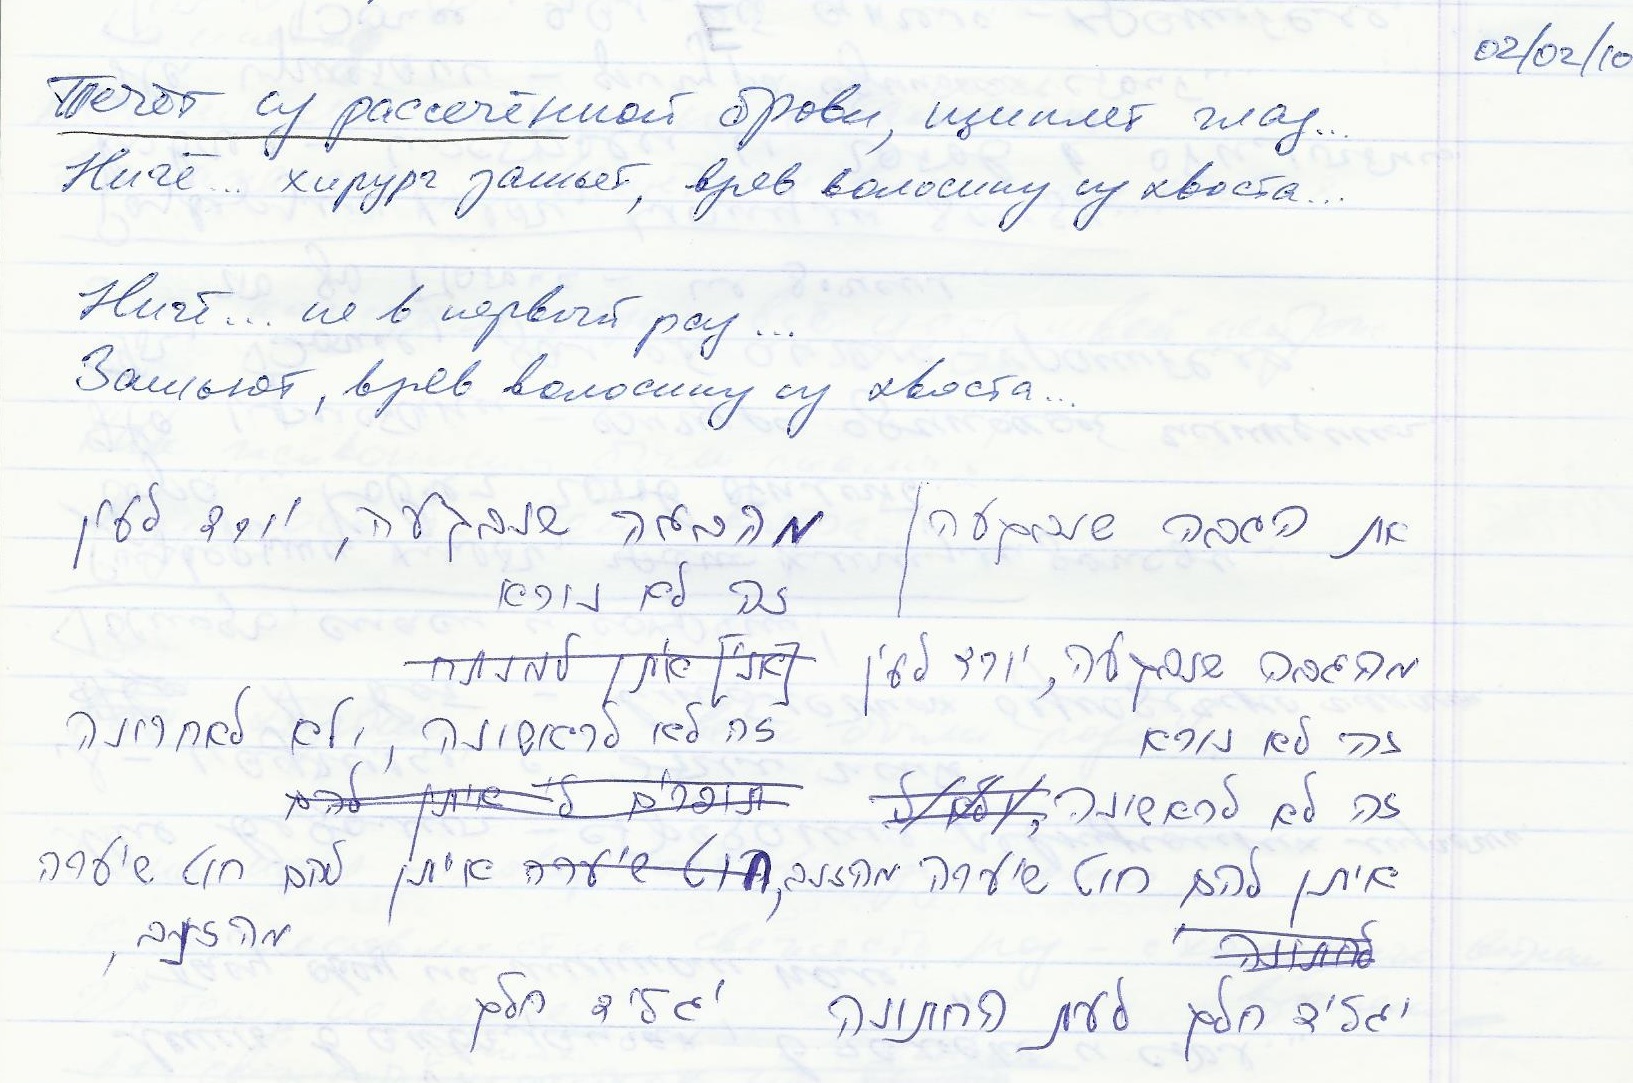 02/02/10
Течёт из рассечённой брови, щиплет глаз...
Ничё... хирург зашьёт, вдев волосину из хвоста...
Ничё... не в первый раз...
Зашьют, вдев волосину из хвоста...
את הגבה שנבקעה | מהגבה שנבקעה, יורד לעין
זה לא נורא
מהגבה שנבקעה, יורד לעין [אני] איתן למנתח
זה לא נורא זה לא לראשונה, ולא לאחרונה
זה לא לראשונה, ולא ל תופרים לי איתן להם
איתן להם חוט שיערה מהזנב, חוט שיערה איתן להם חוט שיערה
לחתונה מהזנב,
יגליד חלק לעת החתונה יגליד חלק